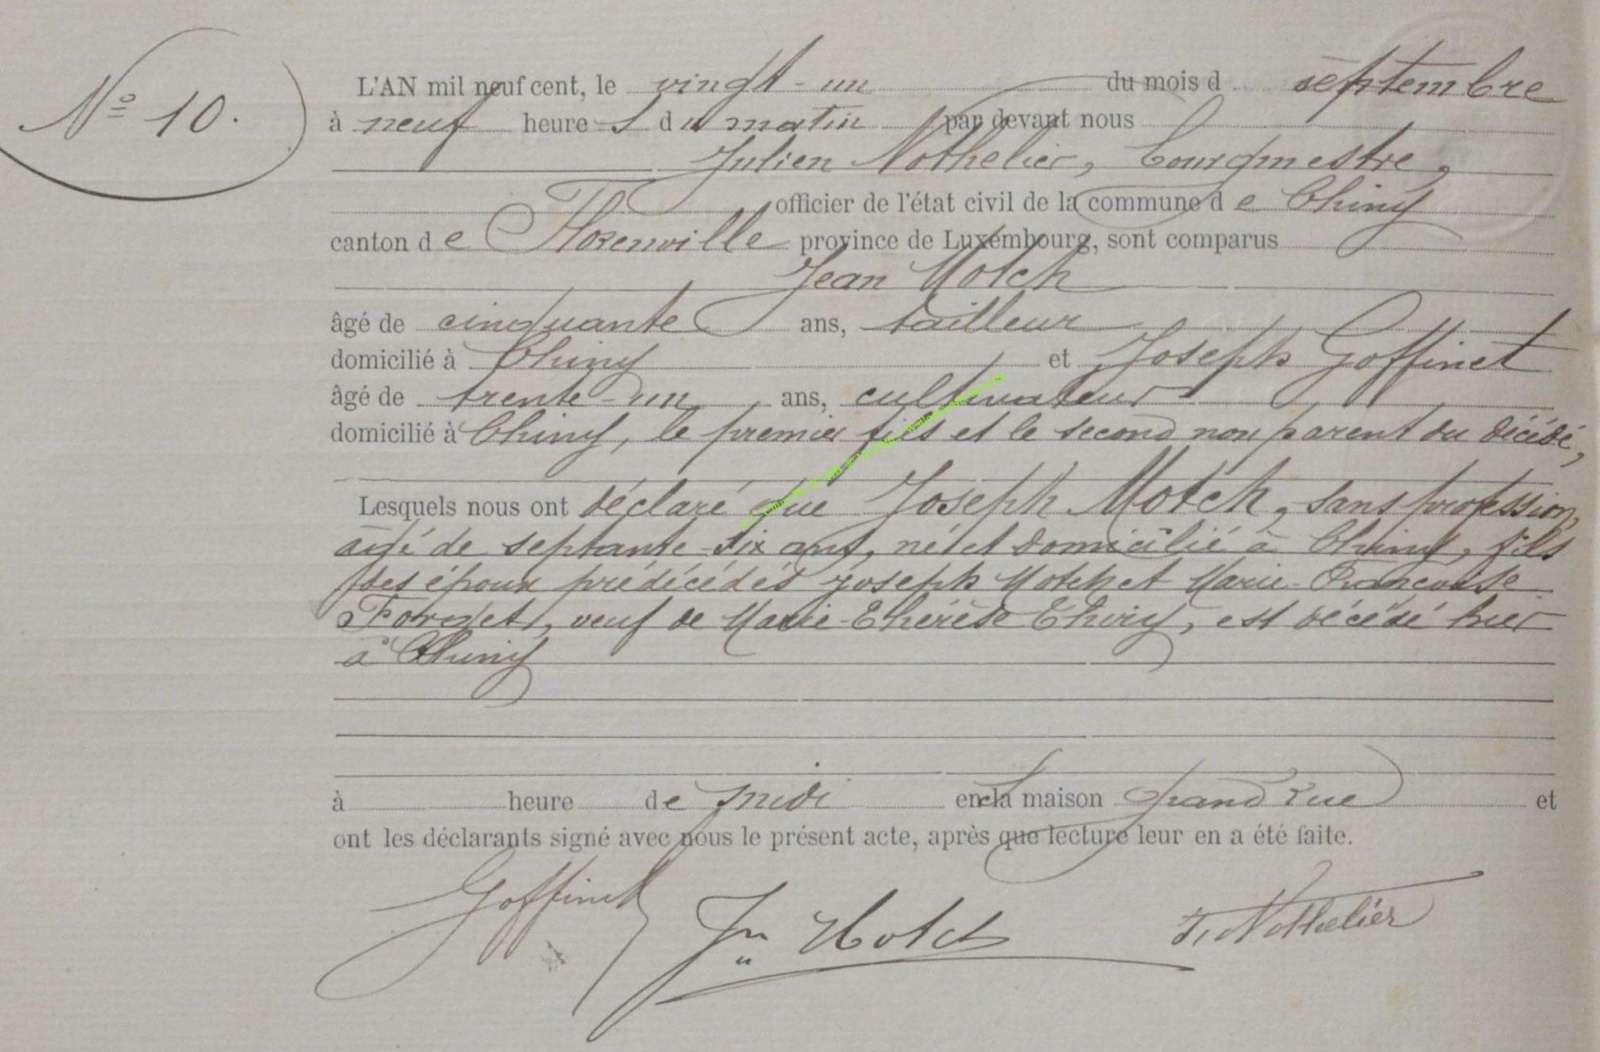 N° 10.
L'AN mil neuf cent, le vingt-un du mois d septembre
à neuf heures du matin par devant nous
Julien Nothelier, bourgmestre,
officier de l'état civil de la commune de Chiny
canton de Florenville province de Luxembourg, sont comparus
Jean Motch
âgé de cinquante ans, tailleur
domicilié à Chiny et Joseph Goffinet
âgé de trente-un ans, cultivateur
domicilié à Chiny, le premier fils et le second non parent du décédé,
Lesquels nous ont déclaré que Joseph Motch, sans profession,
âgé de septante-six ans, né et domicilié à Chiny, fils
des époux prédécédés Joseph Motch et Marie-Françoise
veuf de Marie-Thérèse Thiry, est décédé hier
à Chiny
à heure de midi en la maison grand'rue et
ont les déclarants signé avec nous le présent acte, après que lecture leur en a été faite.
Goffinet Jn Motch J. Nothelier